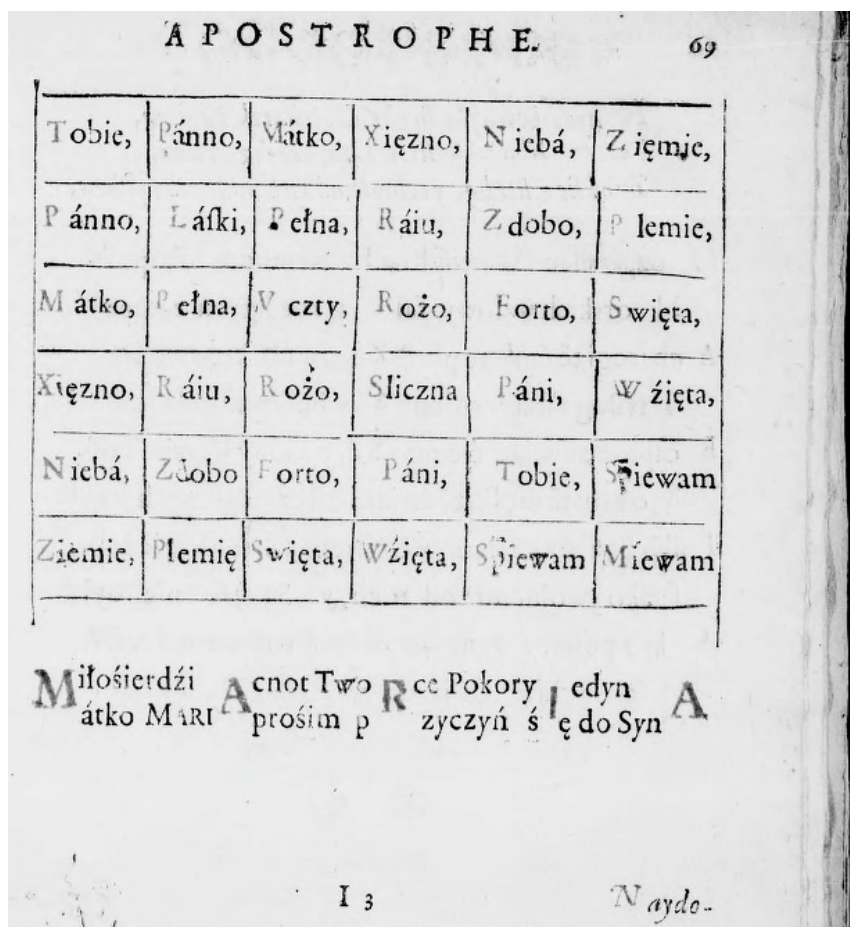 APOSTROPHE. 69
Tobie, Pánno, Mátko, Xięzno, Niebá, Zięmie,
Pánno, Łáſki, Pełna, Ráiu, Zdobo, Plemie,
Mátko, Pełna, Vczty, Rożo, Forto, Swięta,
Xięzno, Ráiu, Rożo, Sliczna Páni, Wźięta,
Niebá, Zdobo Forto, Páni, Tobie, Spiewam
Ziemie, Plemię Swięta, Wźięta, Spiewam Miewam
Miłośierdźi A cnot Two R ce Pokory I edyn A
átko MARI prośim p zyczyń ś ę do Syn
I 3 Naydo-